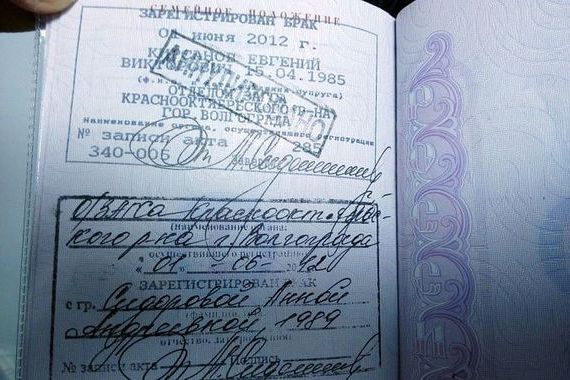 СЕМЕЙНОЕ ПОЛОЖЕНИЕ
ЗАРЕГИСТРИРОВАН БРАК
01 июня 2012 г.
ЕВГЕНИЙ
15.04.1985
ОТДЕЛОМ
КРАСНООКТЯБРЬСКОГО Р-НА
ГОР. ВОЛГОГРАДА
Наименование органа, осуществившего регистрацию
№ записи акта 285
340-006
О/ЗАГСа Краснооктябрьс-
кого р-на г. Волгограда
(наименование органа,
осуществившего регистрацию)
"01" - 06 - 2012
ЗАРЕГИСТРИРОВАН БРАК
с гр. Сидоровой Анной
Андреевной, 1989
отчество, дата рождения)
№ записи акта Подпись